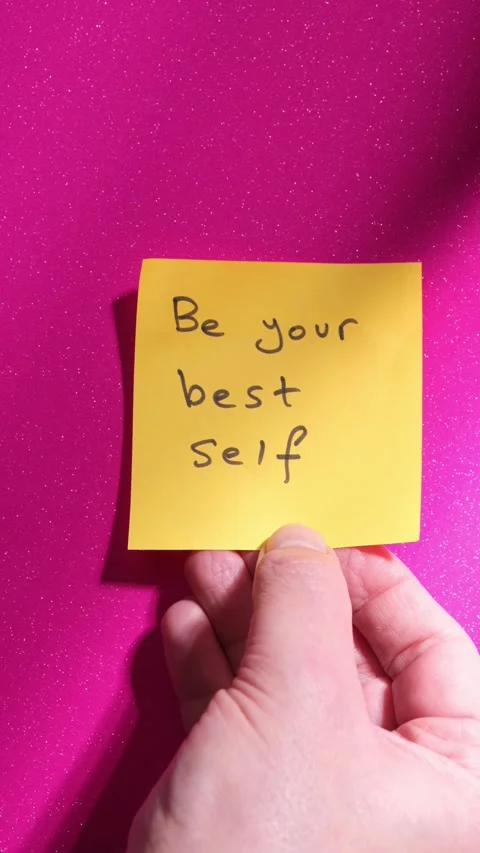 Be your
best
self